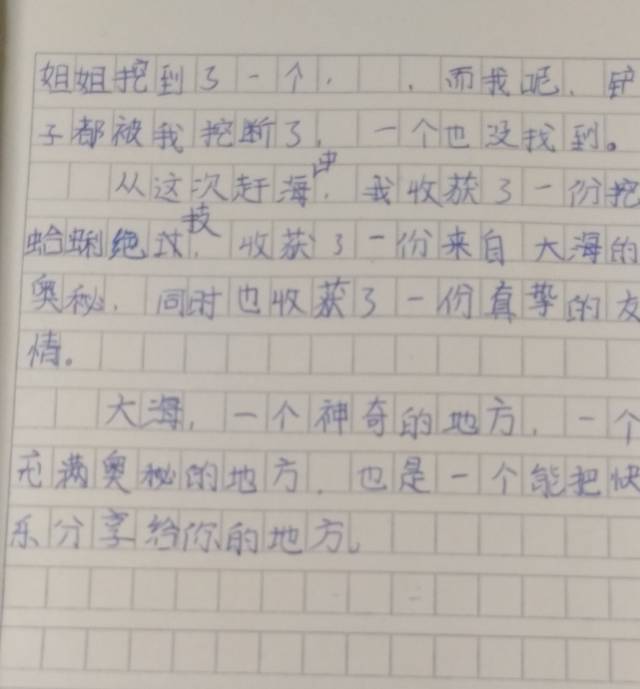 姐姐挖到了一个，，而我呢，铲
子都被我挖断了，一个也没找到。
从这次赶海中，我收获了一份挖
蛤蜊绝技，收获了一份来自大海的
奥秘，同时也收获了一份真挚的友
情。
大海，一个神奇的地方，一个
充满奥秘的地方，也是一个能把快
乐分享给你的地方。